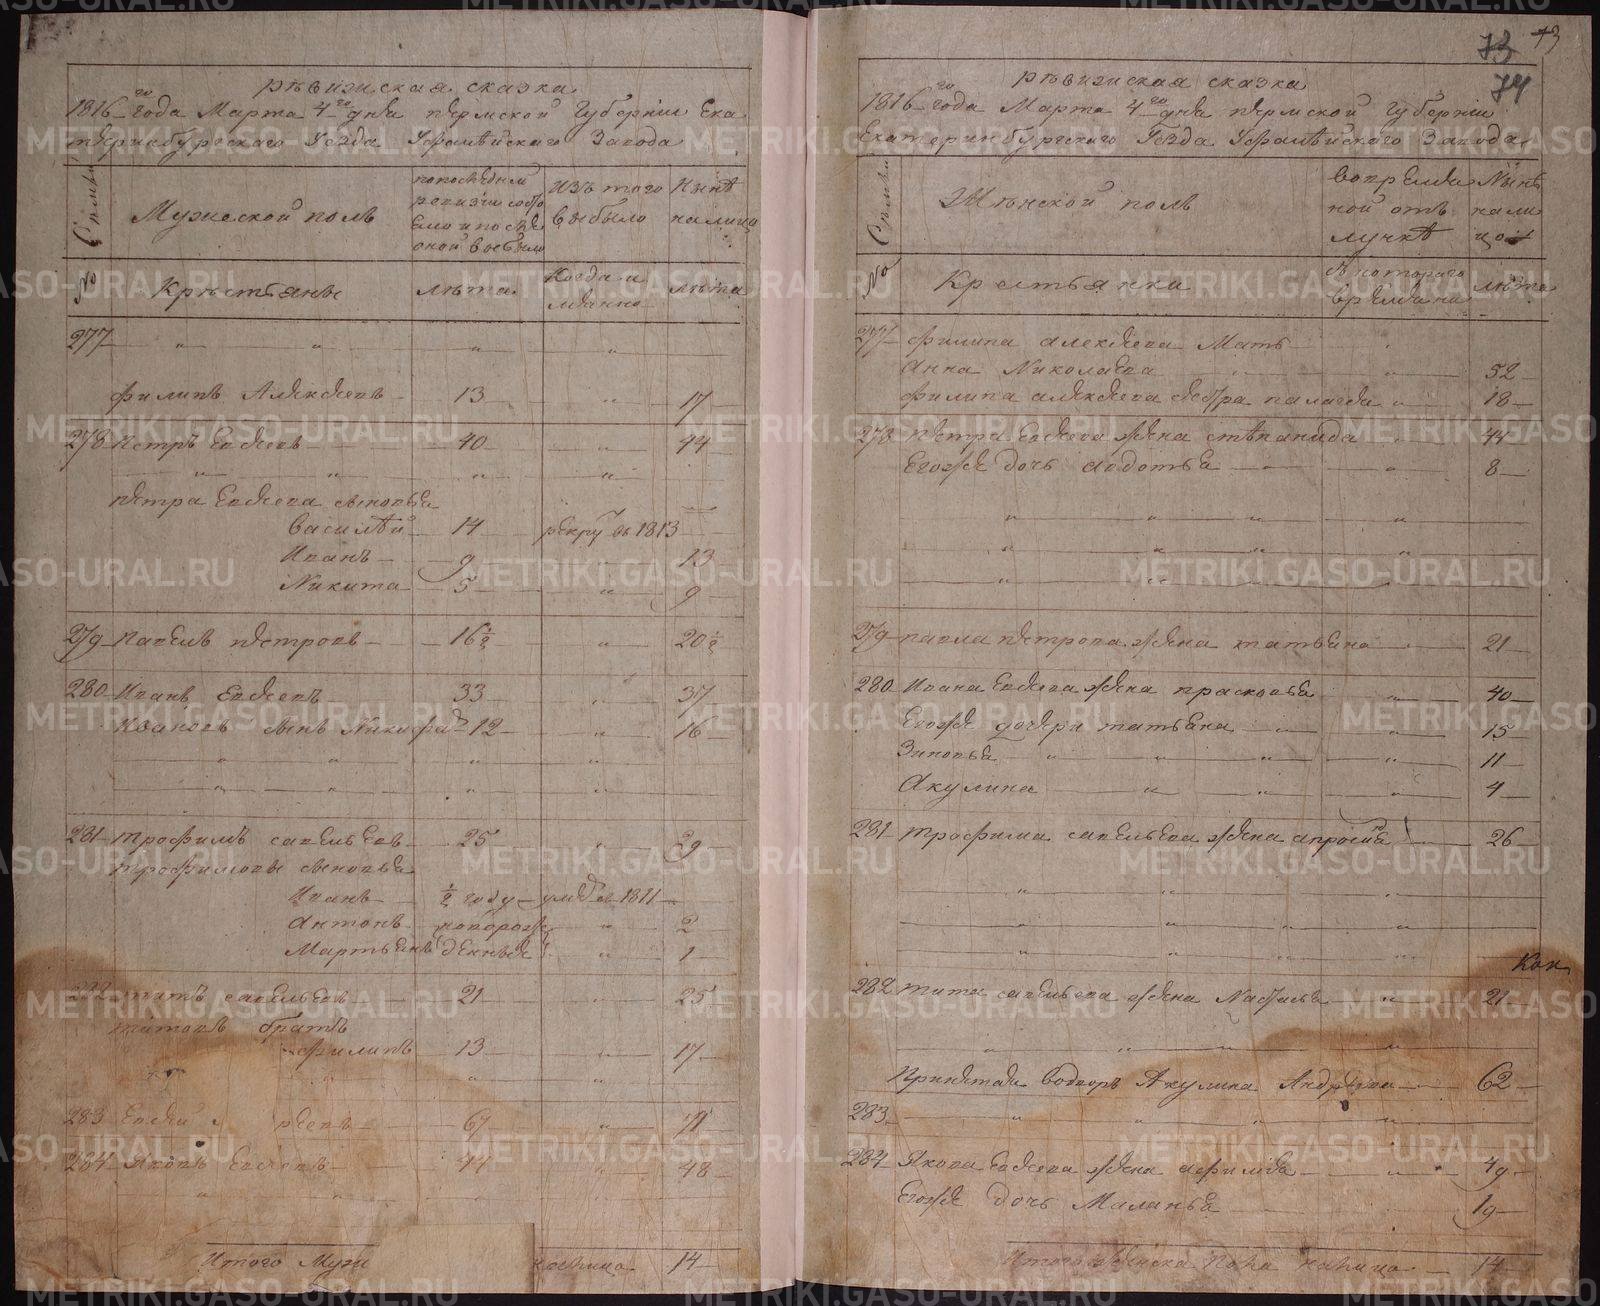 Рѣвизиская сказка
1816 го года Марта 4 го дня Пермской Губерніи Ека
теринбургскаго Уѣзда Уфалѣйскаго Завода
Сѣмьи
Мужеской полъ
попоследней
ревизіи состо
яло и послѣ
оной выбыло
Изъ того
выбыло
Нынѣ
налицо
№
Крѣстьяне
лѣта
Когда и
имянно
лѣта
277
Филипъ Алекѣевъ 13 17
278 Петръ Евсѣевъ 40 44
Петра Евсѣева сыновья
Василѣй 14 рекру въ 1813
Иванъ 9 13
Никита 5 9
279 Павелъ Петровъ 16 ½ 20 ½
280 Иванъ Евсѣевъ 33 37
Ивановъ сынъ Никифоръ 12 16
281 Трофимъ Савельевъ 25 29
Трофимовы сыновья
Иванъ ½ году умре въ 1811
Антонъ новорож 2
Мартьянъ денныя 1
282 Титъ Савельевъ 21 25
Титовъ братъ
Филипъ 13 17
283 Евсѣй 67
284 Яковъ Евсѣевъ 44 48
Итого Муже налицо 14
73 73
74
Рѣвизиская сказка
1816 го года Марта 4 го дня Пермской Губерніи
Екатеринбургскаго Уѣзда Уфалѣйскаго Завода
Сѣмьи
Жѣнской полъ
вопремен
ной отъ
лучкѣ
Нынѣ
нали
цо
№
Крестьянки
Скотораго
времени
лѣта
277 Филипа Алексѣева Мать
Анна Николаева 52
Филипа Алексѣева сестра Палагея 18
278 Петра Евсѣева жена Стѣпанида 44
Егоже дочь Авдотья 8
279 Павла Петрова жена Татьяна 21
280 Ивана Евсѣева жена Прасковья 40
Егоже дочери Татьяна 15
Зиновья 11
Акулина 4
281 Трофима Савельева жена Апросинья 26
282 Тита Савельева жена Настасья 21
Принятая водворъ Акулина Андрѣева 62
283
284 Якова Евсѣева жена Афимья 49
Егоже дочь Маланья 19
Итого женска пола налицо 14
METRIKI.GASO-URAL.RU